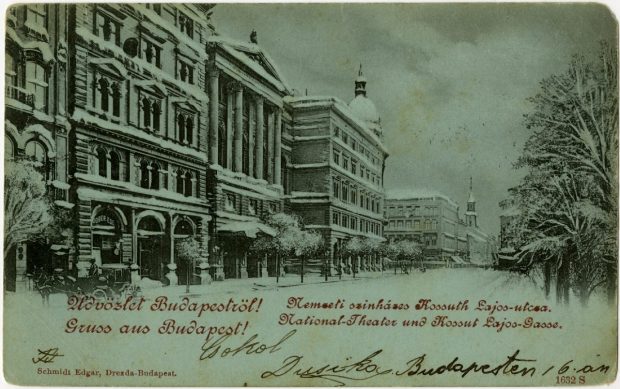 Üdvözlet Budapestről!
Gruss aus Budapest!
Nemzeti szinházes Kossuth Lajos-utcza.
National-Theater und Kossut Lajos-Gasse.
Csokol
Dusika Budapesten 16.-án
Schmidt Edgar, Drezda-Budapest.
1632 S